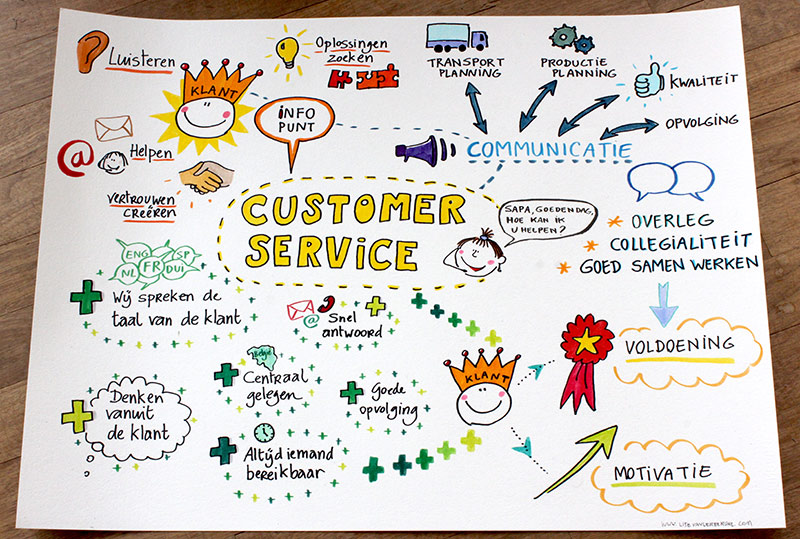 Luisteren
Oplossingen
zoeken
KLANT
INFO
PUNT
@
Helpen
VERTROUWEN
CREËREN
TRANSPORT
PLANNING
PRODUCTIE
PLANNING
KWALITEIT
OPVOLGING
COMMUNICATIE
CUSTOMER
SERVICE
SAPA, GOEDENDAG,
HOE KAN IK
U HELPEN?
* OVERLEG
* COLLEGIALITEIT
* GOED SAMEN WERKEN
ENG
SP
NL
FR
DUI
Wij spreken de
taal van de klant
@
Snel
antwoord
België
Centraal
gelegen
Goede
opvolging
Denken
vanuit
de klant
Altijd iemand
bereikbaar
KLANT
VOLDOENING
MOTIVATIE